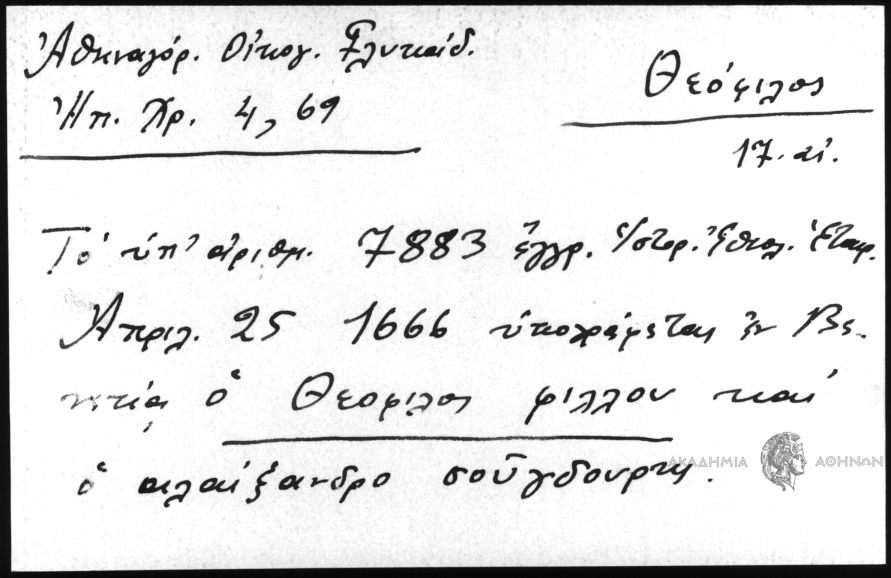 Ἀθηναγόρ. Οἰκογ. Γλυκαίδ.
Ἠπ. Χρ. 4, 69
Θεόφιλος
17. αἰ.
Τό ὑπ' ἀριθμ. 7883 ἔγγρ. Ἱστορ. Ἐθνολ. Ἑταιρ.
Ἀπριλ. 25 1666 ὑπογράφεται ἐν Βε-
νετίᾳ ὁ Θεοφιλος φιλλου καί
ὁ αλαίξανδρο σοῦγδουρῆς.
ΑΚΑΔΗΜΙΑ ΑΘΗΝΩΝ